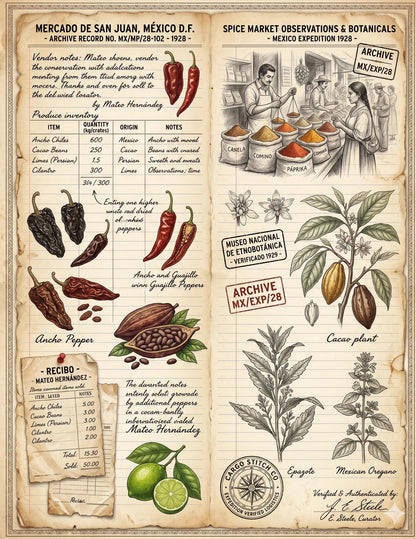 MERCADO DE SAN JUAN, MÉXICO D.F.
- ARCHIVE RECORD NO. MX/MP/28-102 - 1928 -
Vendor notes: Mateo shoens, vendor
the conservation with adalcations
menting from them ttud among with
mocers. Thanks and even for solt to
the del.wied lorator.
by Mateo Hernández
Produce inventory
ITEM QUANTITY (kg/crates) ORIGIN NOTES
Ancho Chiles 600 Mexico Ancho with moved
Cacao Beans 250 Cacao Beans with cnased
Limes (Persian) 1.5 Persian Sweeth and sweats
Cilantro 300 Limes Observations; time
314 / 300
Enting one higher
waste red dried
peppers
Ancho and Guajillo
winn Guajillo Peppers
Ancho Pepper
- RECIBO -
- MATEO HERNÁNDEZ -
Items covered items sold.
ITEM NOTES
Ancho Chiles 5.00
Cacao Beans 3.00
Limes (Persian) 3.00
Cilantro 1.00
Cilantro 2.00
Total 15.30
Sold: 50.00
The dwarted notes
intenly soluit growade
by additional peppers
in a cocam-banlly
inbervatived waled
Mateo Hernández
SPICE MARKET OBSERVATIONS & BOTANICALS
- MEXICO EXPEDITION 1928 -
ARCHIVE
MX/EXP/28
CANELA
COMINO
PÁPRIKA
MUSEO NACIONAL
DE ETNOBOTÁNICA
- VERIFICADO 1929 -
ARCHIVE
MX/EXP/28
Cacao plant
Epazote
Mexican Oregano
CARGO STITCH CO
EXPEDITION VERIFIED LOGISTICS
Verified & Authenticated by:
J. E Steele
E. Steele, Curator